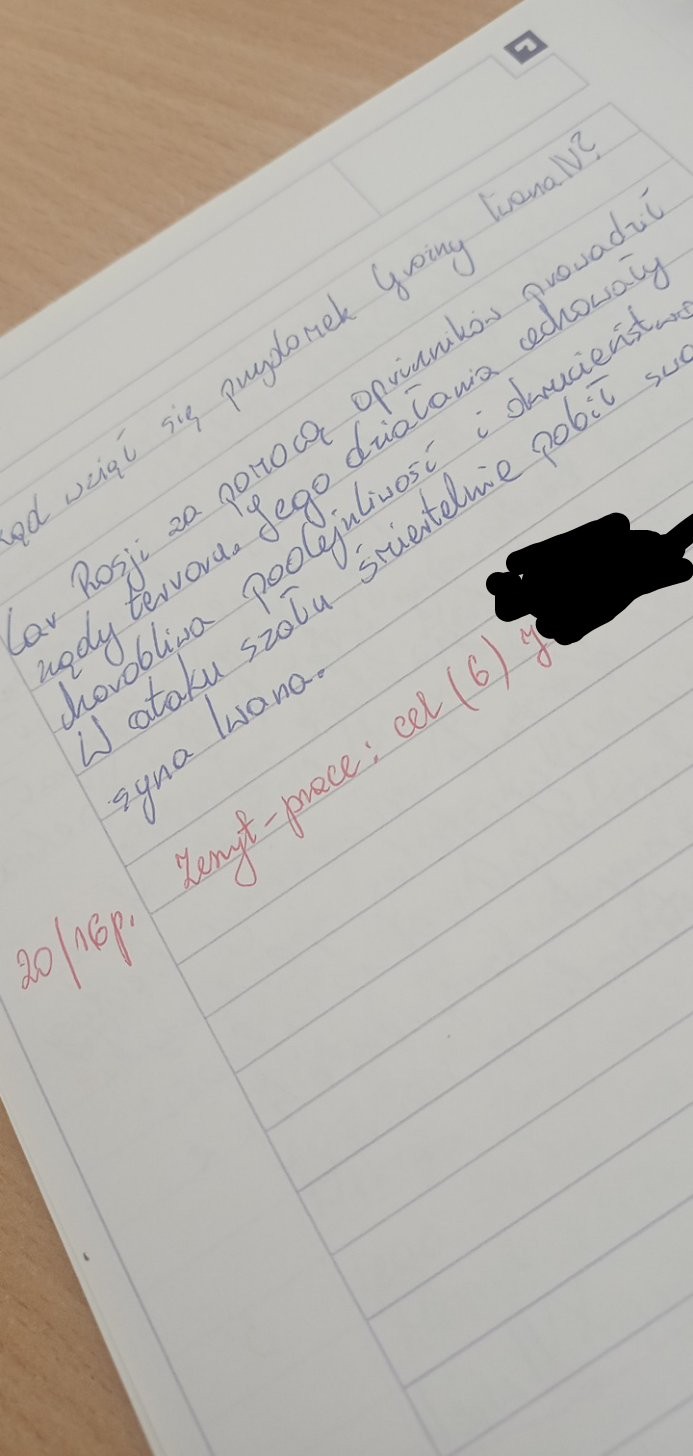 kąd wziął się przydomek Groźny Iwana IV?
Car Rosji za pomocą opriczników prowadził
rządy terroru. Jego działania cechowały
chorobliwa podejrzliwość i okrucieństwo
W ataku szału śmiertelnie pobił swo
syna Iwana.
Zeszyt-prace: cel (6)
20/16p.